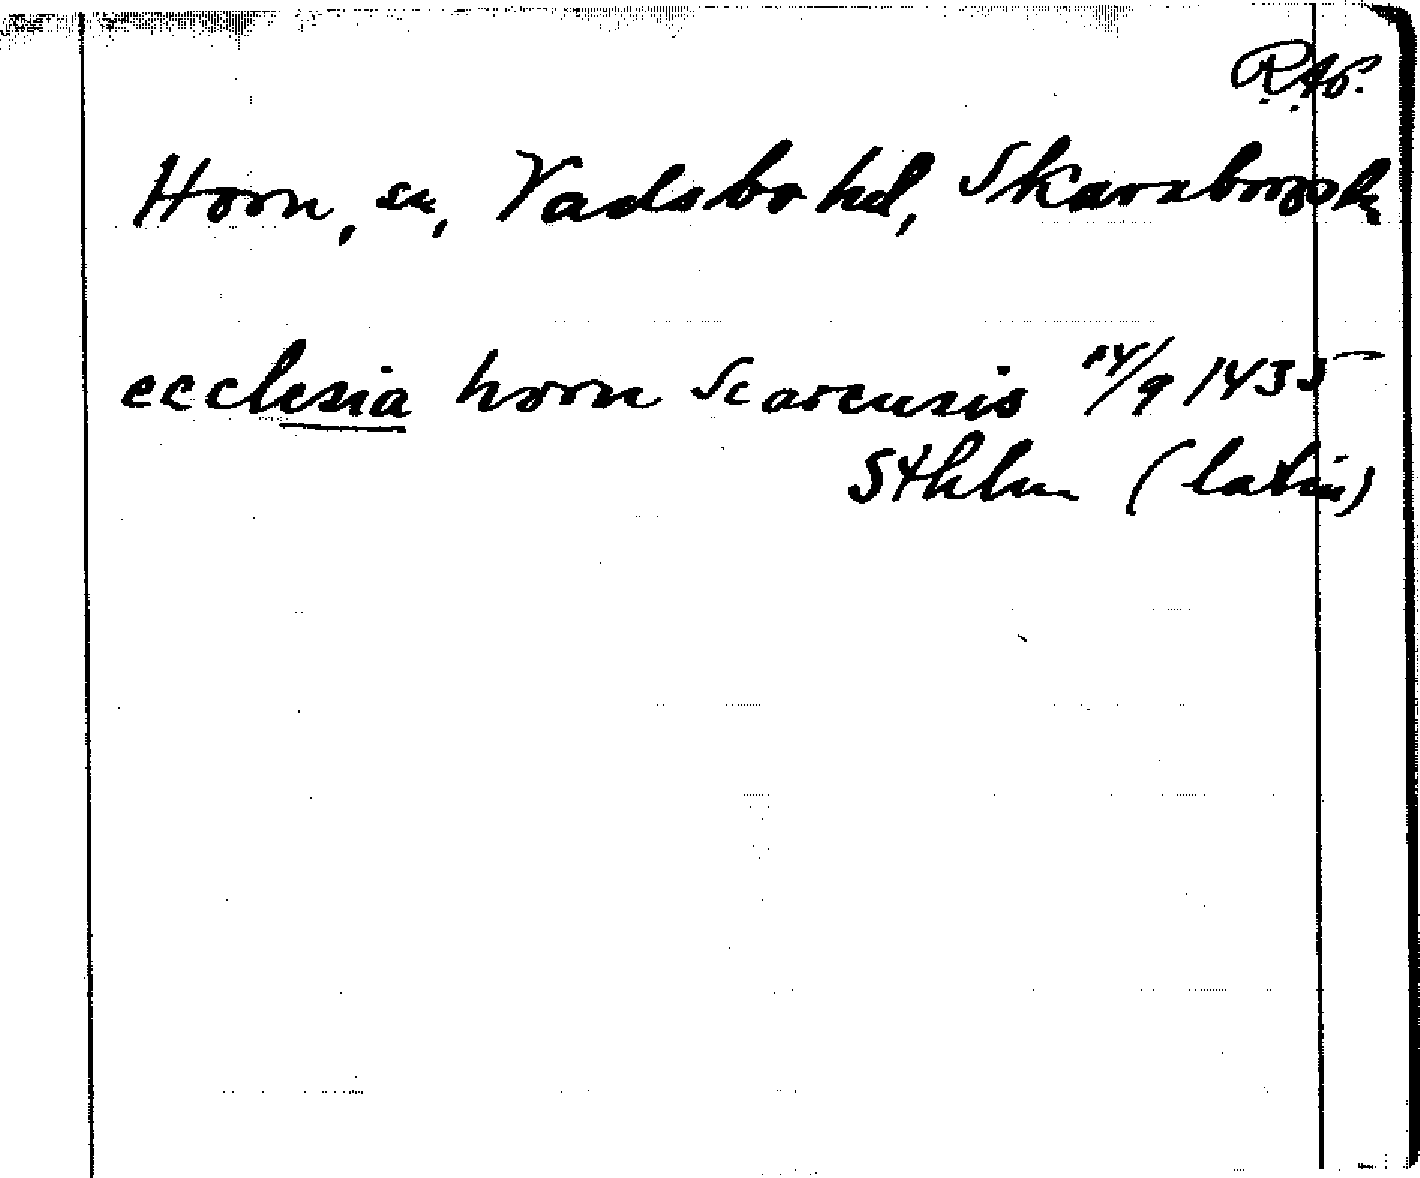 Horn, sn, Vadsbo hd, Skaraborgs l.
ecclesia horn Scarensis 14/9 1435
Sthlm (latin)